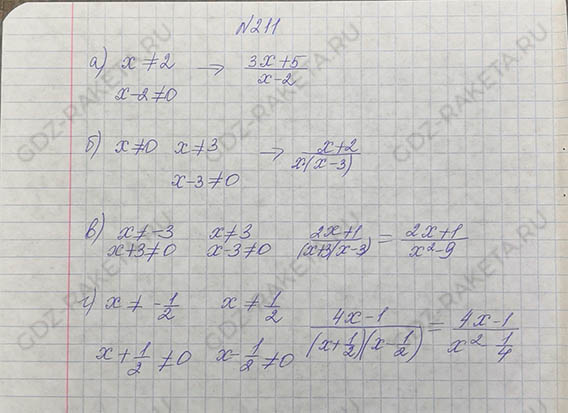 N211
а) x ≠ 2 → (3x+5)/(x-2)
x-2≠0
б) x≠0 x≠3 → (x+2)/(x·(x-3))
x-3≠0
в) x≠-3 x≠3 (2x+1)/((x+3)(x-3)) = (2x+1)/(x²-9)
x+3≠0 x-3≠0
г) x ≠ -1/2 x ≠ 1/2 (4x-1)/((x+1/2)(x-1/2)) = (4x-1)/(x² 1/4)
x+1/2≠0 x-1/2≠0
GDZ-RAKETA.RU
GDZ-RAKETA.RU
GDZ-RAKETA.RU
GDZ-RAKETA.RU
GDZ-RAKETA.RU
GDZ-RAKETA.RU